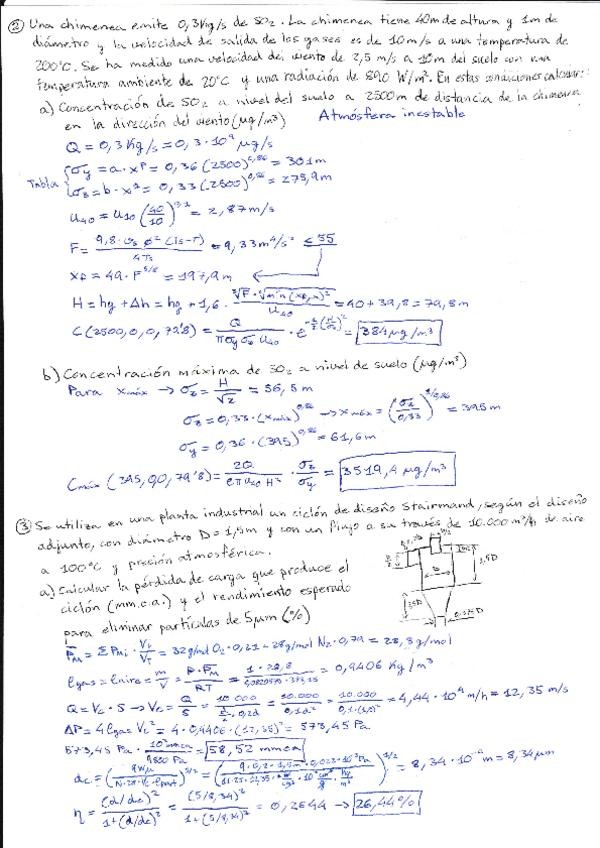 ② Una chimenea emite 0,3 Kg/s de SO₂. La chimenea tiene 40m de altura y 1m de
diámetro y la velocidad de salida de los gases es de 10m/s a una temperatura de
200°C. Se ha medido una velocidad del viento de 2,5 m/s a 10m del suelo con una
temperatura ambiente de 20°C y una radiación de 800 W/m². En estas condiciones calcular:
a) Concentración de SO₂ a nivel del suelo a 2500m de distancia de la chimenea
en la dirección del viento (μg/m³) Atmósfera inestable
Q = 0,3 Kg/s = 0,3·10⁹ μg/s
Tabla { σy = a·x^p = 0,36 (2500)^0,86 = 301m
σz = b·x^q = 0,33 (2500)^0,86 = 275,9m
u₄₀ = u₁₀ (40/10)^0,1 = 2,87m/s
F = 9,8·vs·ø²(Ts-T) / 4Ts = 9,33m⁴/s³ ≤ 55
xf = 49·F^5/8 = 197,9m
H = hg + Δh = hg + 1,6 · ∛F·∛min(xf,x)² / u₄₀ = 40 + 39,8 = 79,8m
C(2500,0,0,79'8) = Q / πσyσz u₄₀ · e^-½(H/σz)² = 384 μg/m³
b) Concentración máxima de SO₂ a nivel de suelo (μg/m³)
Para xmáx → σz = H/√2 = 56,5m
σz = 0,33·(xmáx)^0,86 → xmáx = (σz/0,33)^1/0,86 = 395m
σy = 0,36·(395)^0,86 = 61,6m
Cmáx (395,0,0,79'8) = 2Q / eπ u₄₀ H² · σz/σy = 3519,4 μg/m³
③ Se utiliza en una planta industrial un ciclón de diseño Stairmand, según el diseño
adjunto, con diámetro D = 1,5m y con un flujo a su través de 10.000 m³/h de aire
a 100°C y presión atmosférica.
a) Calcular la pérdida de carga que produce el
ciclón (mm.c.a.) y el rendimiento esperado
para eliminar partículas de 5μm (%)
P̄M = Σ PMi · Vi/VT = 32g/mol O₂·0,21 + 28g/mol N₂·0,79 = 28,8g/mol
ρgas = ρaire = m/V = P·P̄M / RT = 1·28,8 / 0,08205·373,15 = 0,9406 Kg/m³
Q = Vc·S → Vc = Q/S = 10.000 / D/2·0,2d = 10.000 / 0,1d² = 10.000 / 0,1·(1,5)² = 4,44·10⁴ m/h = 12,35 m/s
ΔP = 4ρgas Vc² = 4·0,9406·(12,35)² = 573,45 Pa
573,45 Pa · 10³mmca / 9800 Pa = 58,52 mmca
= 8,34·10⁻⁶ m = 8,34μm
η = (d/dc)² / 1+(d/dc)² = (5/8,34)² / 1+(5/8,34)² = 0,2644 → 26,44%